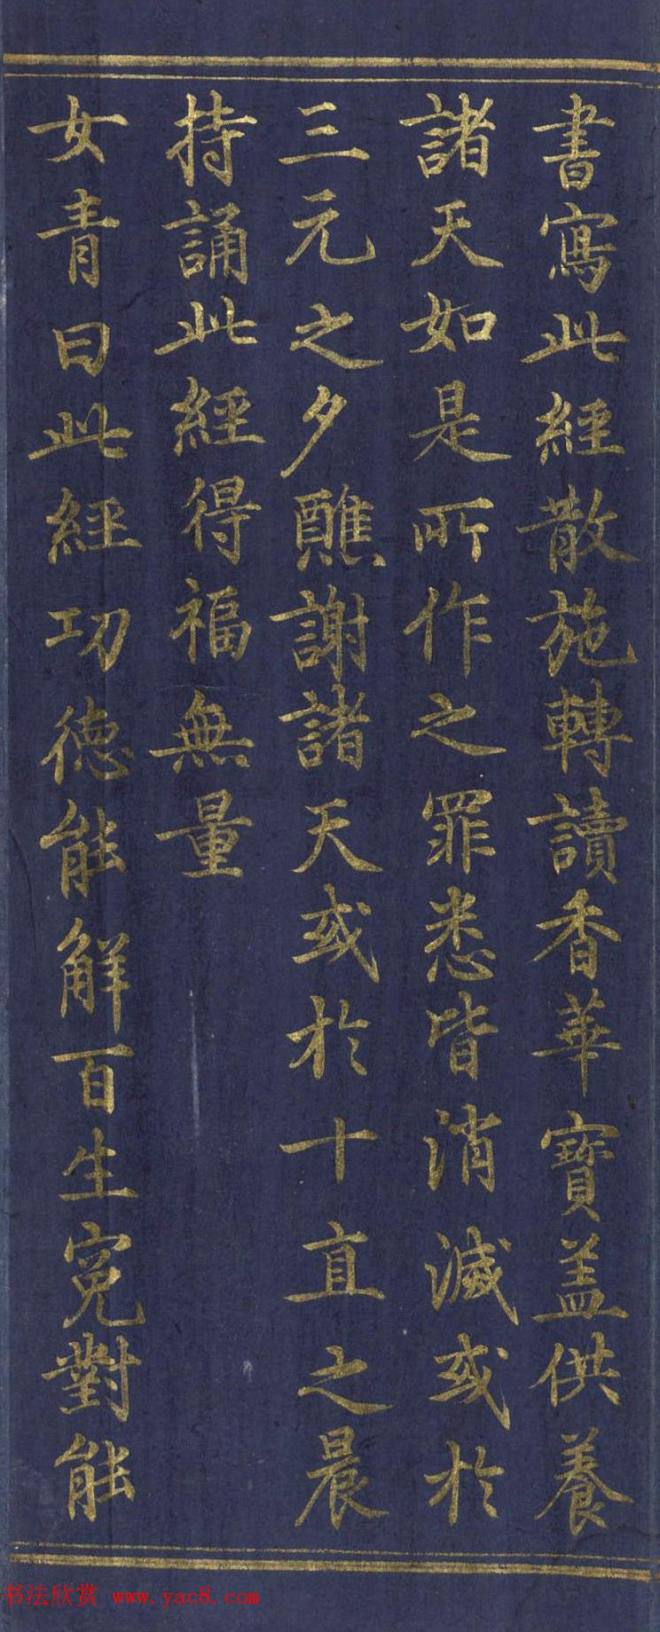 書寫此經散施轉讀香華寶盖供養
諸天如是所作之罪悉皆消滅或於
三元之夕醮謝諸天或於十直之晨
持誦此經得福無量
女青曰此經功德能解百生冤對能
书法欣赏 www.yac8.com